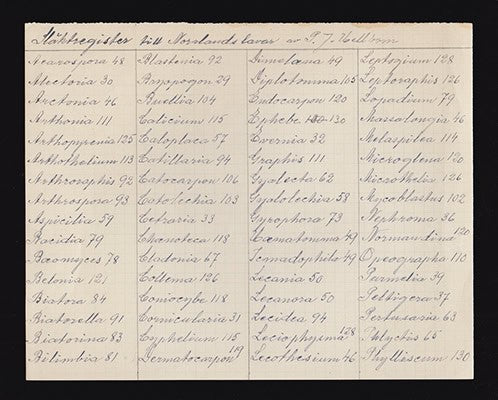 Släktregister till Norrlands lavar av P. J. Hellbom
Acarospora 48
Alectoria 30
Arctonia 46
Arthonia 111
Arthopyrenia 125
Arthothelium 113
Arthroraphis 92
Arthrospora 93
Aspicilia 59
Bacidia 79
Bæomyces 78
Belonia 121
Biatora 84
Biatorella 91
Biatorina 83
Bilimbia 81
Blastenia 92
Bryopogon 29
Buellia 104
Calicium 115
Caloplaca 57
Catillaria 94
Catocarpon 106
Catolechia 103
Cetraria 33
Chænoteca 118
Cladonia 67
Collema 126
Coniocybe 118
Cornicularia 31
Cyphelium 115
Dermatocarpon 119
Dimelæna 49
Diplotomma 105
Endocarpon 120
Ephebe 130
Evernia 32
Graphis 111
Gyalecta 62
Gyalolechia 58
Gyrophora 73
Hæmatomma 49
Icmadophila 49
Lecania 50
Lecanora 50
Lecidea 94
Leciophysma 128
Lecothecium 46
Leptogium 128
Leptoraphis 126
Lopadium 79
Massalongia 46
Melaspilea 114
Microglena 120
Microthelia 126
Mycoblastus 102
Nephroma 36
Normandina 120
Opegrapha 110
Parmelia 39
Peltigera 37
Pertusaria 63
Phlyctis 65
Phylliscum 130